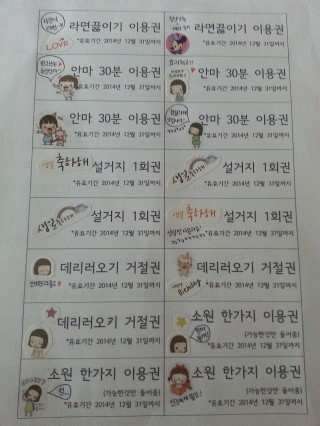 라면끓이기 이용권
*유효기간 2014년 12월 31일까지
LOVE
라면끓이기 이용권
*유효기간 2014년 12월 31일까지
안마 30분 이용권
*유효기간 2014년 12월 31일까지
안마 30분 이용권
*유효기간 2014년 12월 31일까지
안마 30분 이용권
*유효기간 2014년 12월 31일까지
안마 30분 이용권
*유효기간 2014년 12월 31일까지
축하해
설거지 1회권
*유효기간 2014년 12월 31일까지
설거지 1회권
*유효기간 2014년 12월 31일까지
설거지 1회권
*유효기간 2014년 12월 31일까지
축하해
설거지 1회권
*유효기간 2014년 12월 31일까지
데리러오기 거절권
*유효기간 2014년 12월 31일까지
데리러오기 거절권
*유효기간 2014년 12월 31일까지
데리러오키 거절권
*유효기간 2014년 12월 31일까지
소원 한가지 이용권
(가능한것만 들어줌)
*유효기간 2014년 12월 31일까지
소원 한가지 이용권
(가능한것만 들어줌)
*유효기간 2014년 12월 31일까지
소원 한가지 이용권
(가능한것만 들어줌)
*유효기간 2014년 12월 31일까지